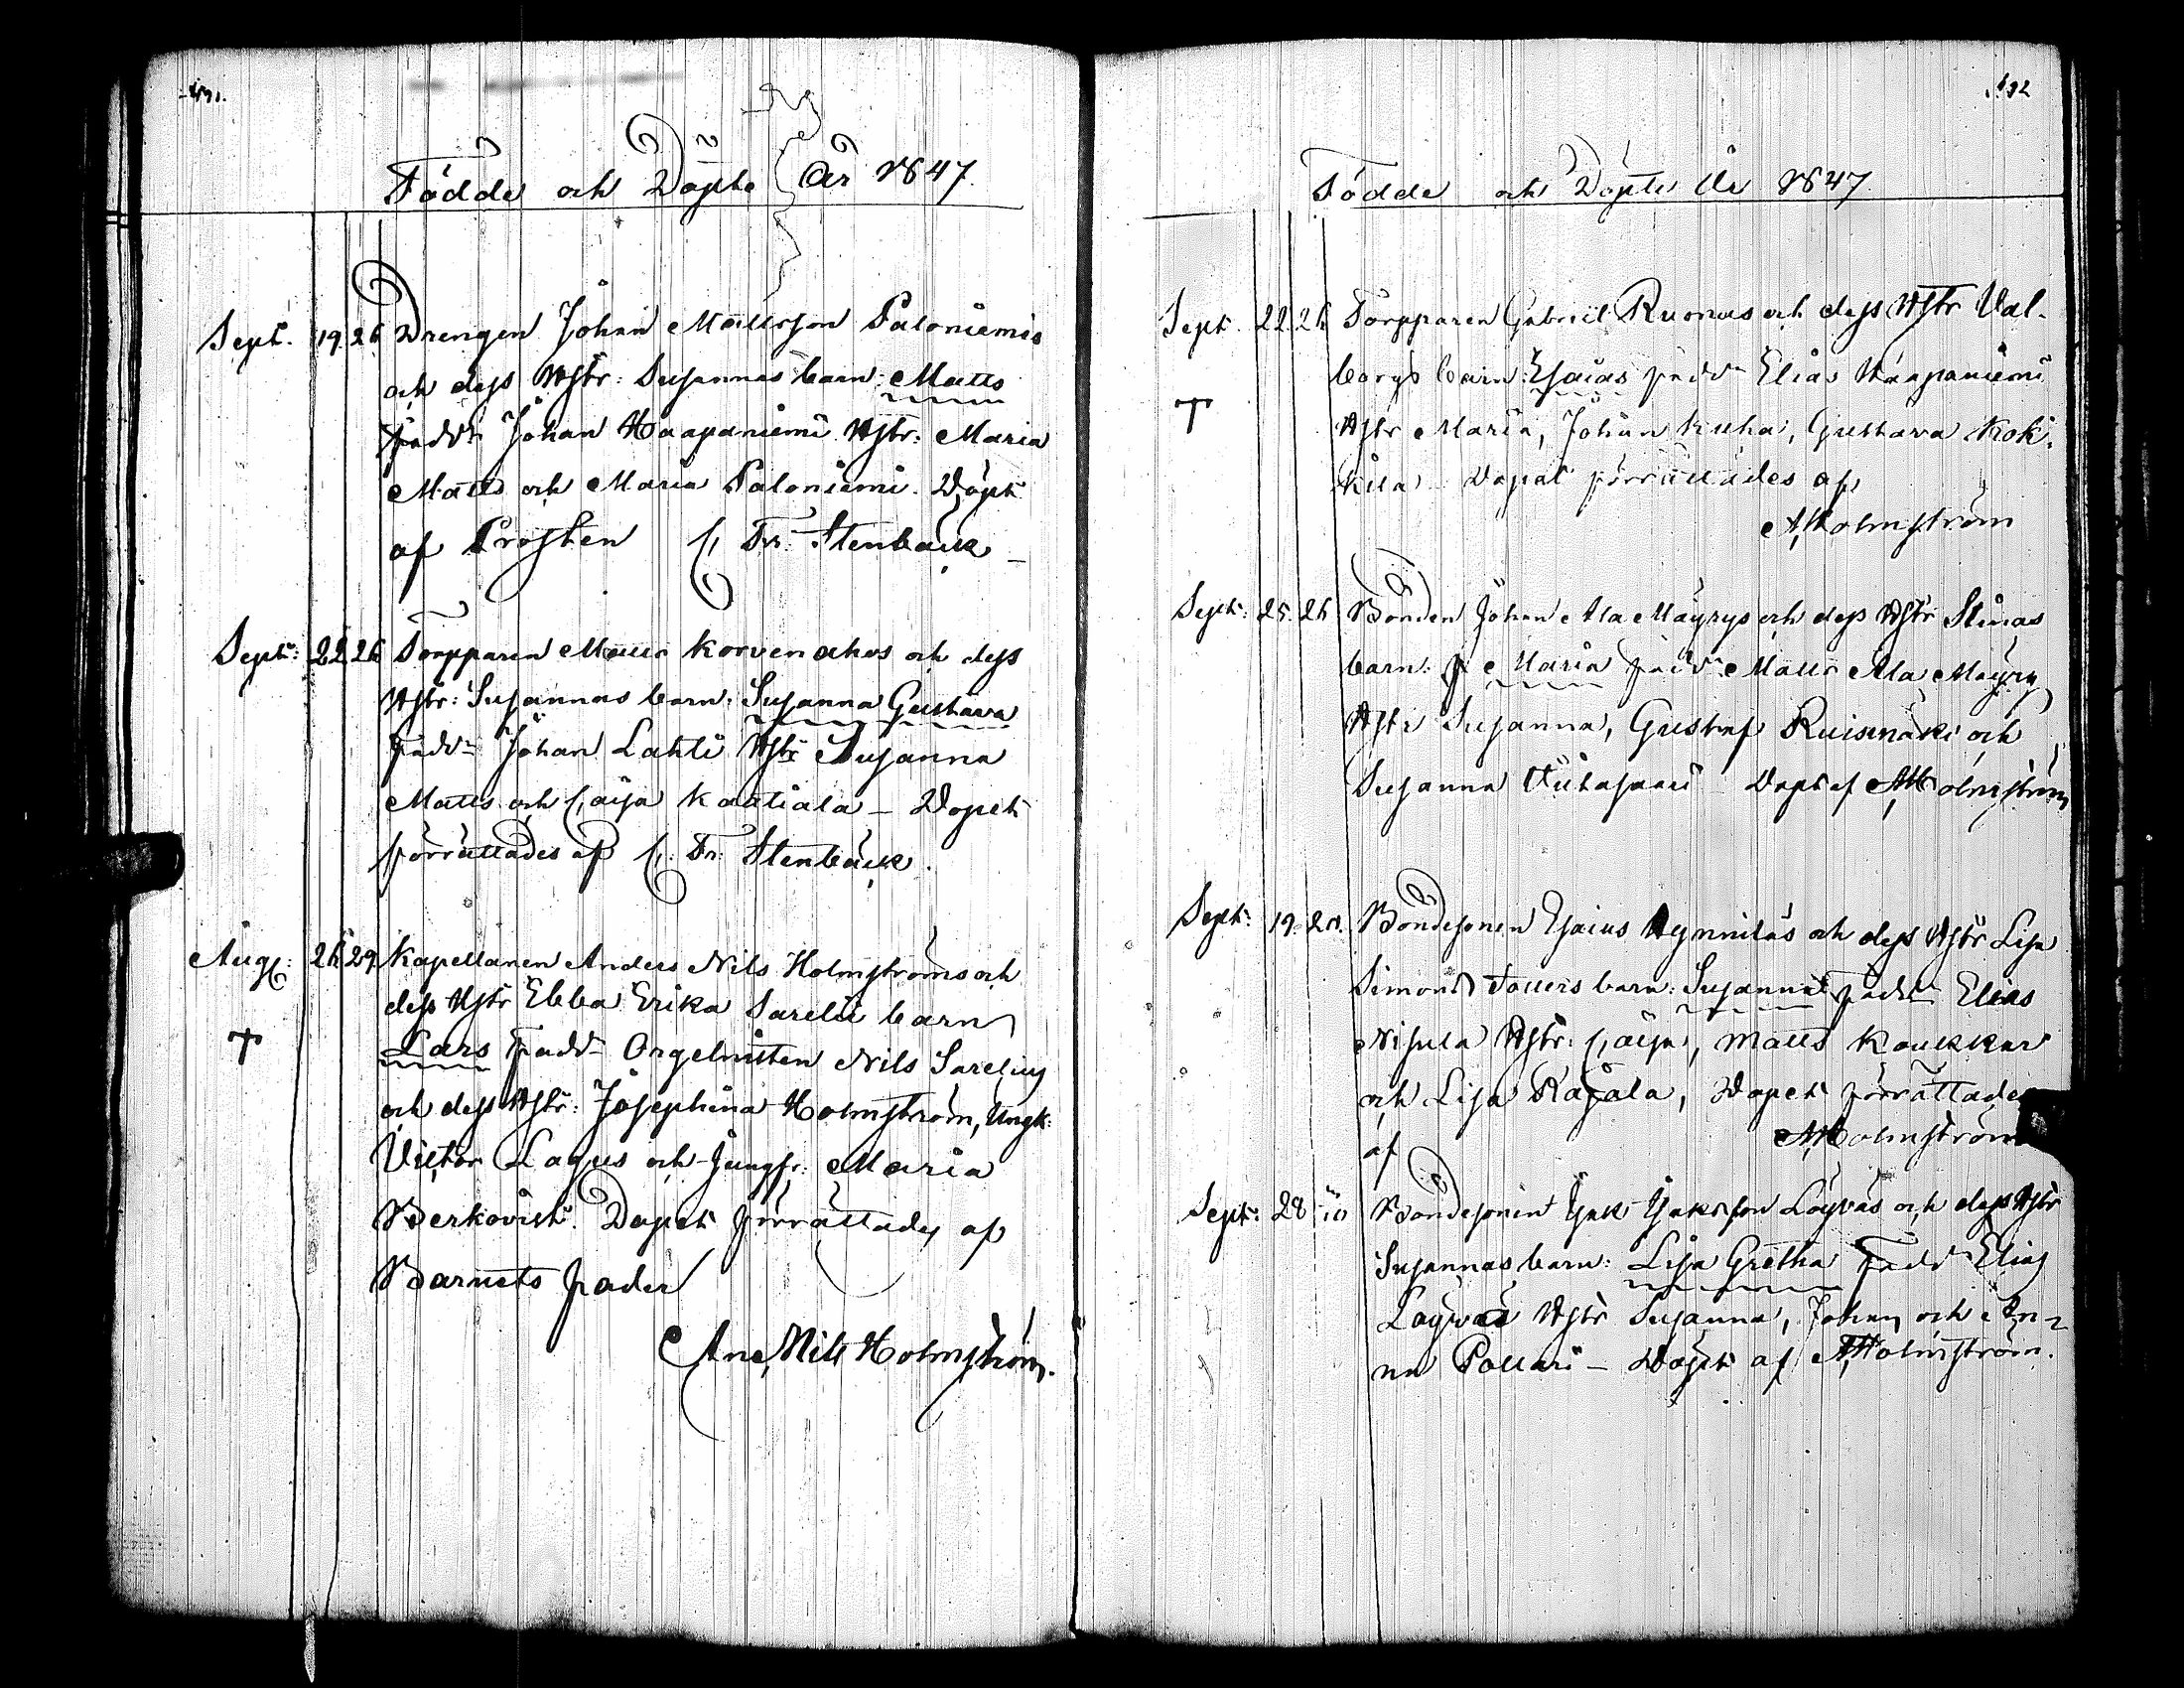 Födde och Döpte År 1847.
Sept. 19. 26 Drengen Johan Mattsson Paloniemis
och dess Hstr: Susannas barn: Matts
Fadd: Johan Haapaniemi Hstr: Maria
Matts och Maria Paloniemi. Döpt
af Prosten C. Fr. Stenbäck
Sept: 22 26 Torpparen Matts Korvenahos och dess
Hstr: Susannas barn: Susanna Gustava
Fadd: Johan Lahti Hstr Susanna
Matts och Caisa Kaatiala – Dopet
förrättades af C. Fr. Stenbäck.
Aug: 26 29 Kapellanen Anders Nils Holmströms och
dess Hstr Ebba Erika Sarelii barn
† Lars Fadd: Orgelnisten Nils Sarelius
och dess Hstr: Josephina Holmström, Ungk:
Victor Lagus och Jungfr: Maria
Berkovist. Dopet förrättades af
Barnets fader
And. Nils Holmström.
192
Födde och Döpte År 1847.
Sept. 22. 26 Torpparen Gabriel Ruonas och dess Hstr Val-
borgs barn: Esaias fadd: Elias Haapaniemi
† Hstr Maria, Johan Kuha, Gustava Kok-
kila Dopet förrättades af
AHolmström
Sept: 25. 26 Bonden Johan Ala Mäyrys och dess Hstr Stinas
barn: Maria fadd: Matts Ala Mäyry
Hstr Susanna, Gustaf Ruismäki och
Susanna Viitasaari Döpt af AHolmström
Sept: 19. 20. Bondesonen Esaias Hynniläs och dess Hstr Lisa
Simons dotters barn: Susanna Fadd: Elias
Nisula Hstr: Caisa, Matts Koukkar
och Lisa Rajala, Dopet förrättades
af AHolmström
Sept: 28 Bondesonen Isak Isaksson Löyväs och dess Hstr
Susannas barn: Lisa Gretha Fadd: Elias
Löyvä Hstr Susanna, Johan och An-
na Pollari – Döpt af AHolmström.